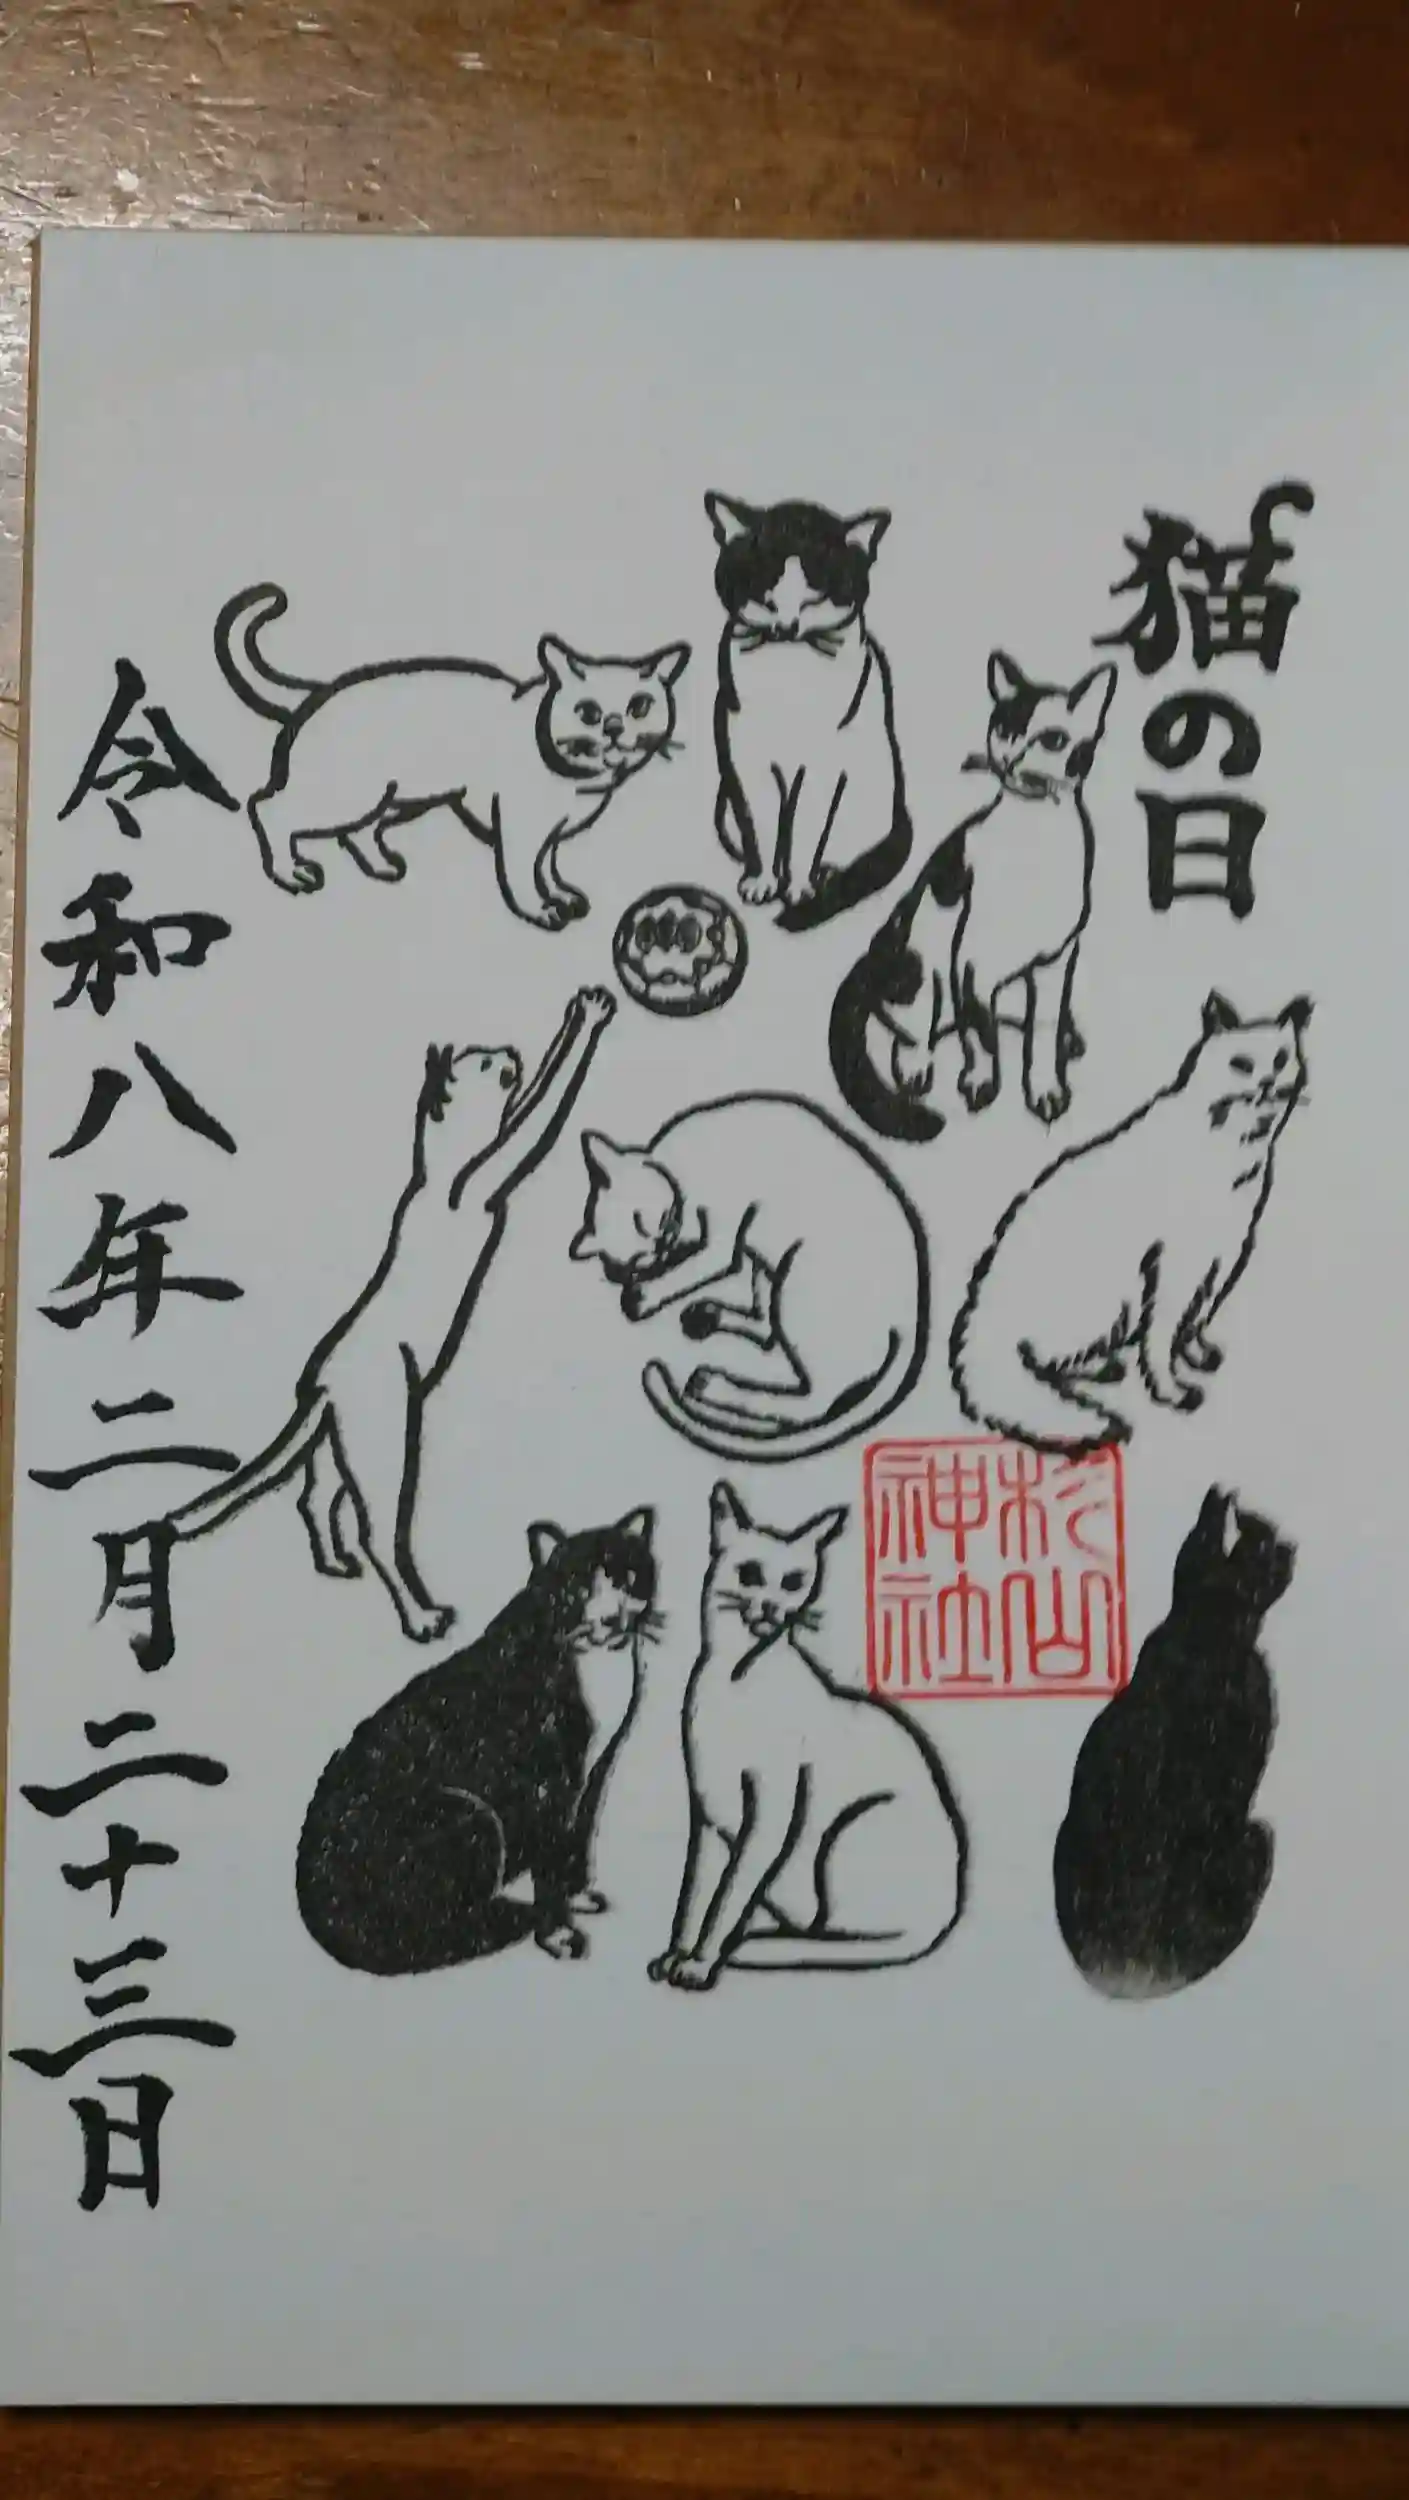 猫の日
杉山
神社
令和八年二月二十三日